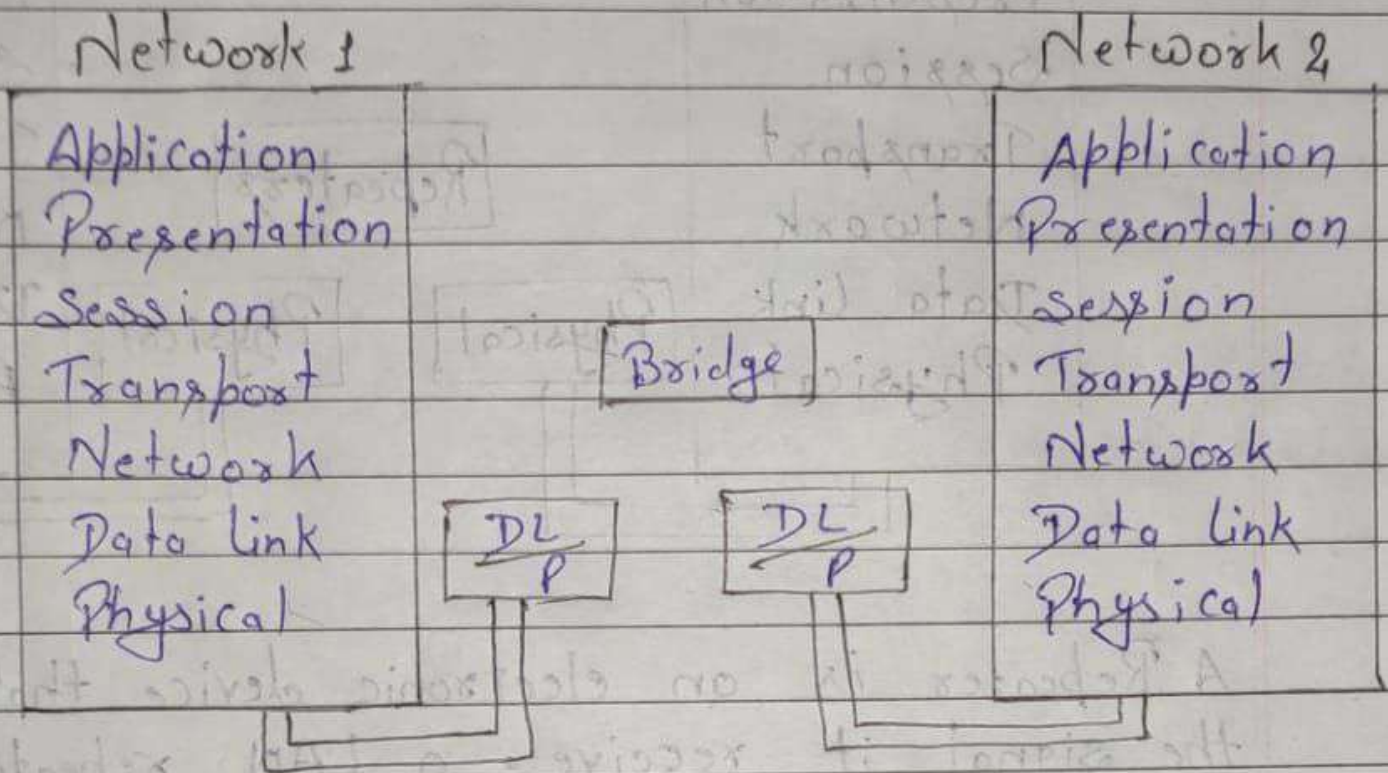 Network 1
Application
Presentation
Session
Transport
Network
Data link
Physical
Bridge
DL
P
DL
P
Network 2
Application
Presentation
Session
Transport
Network
Data link
Physical